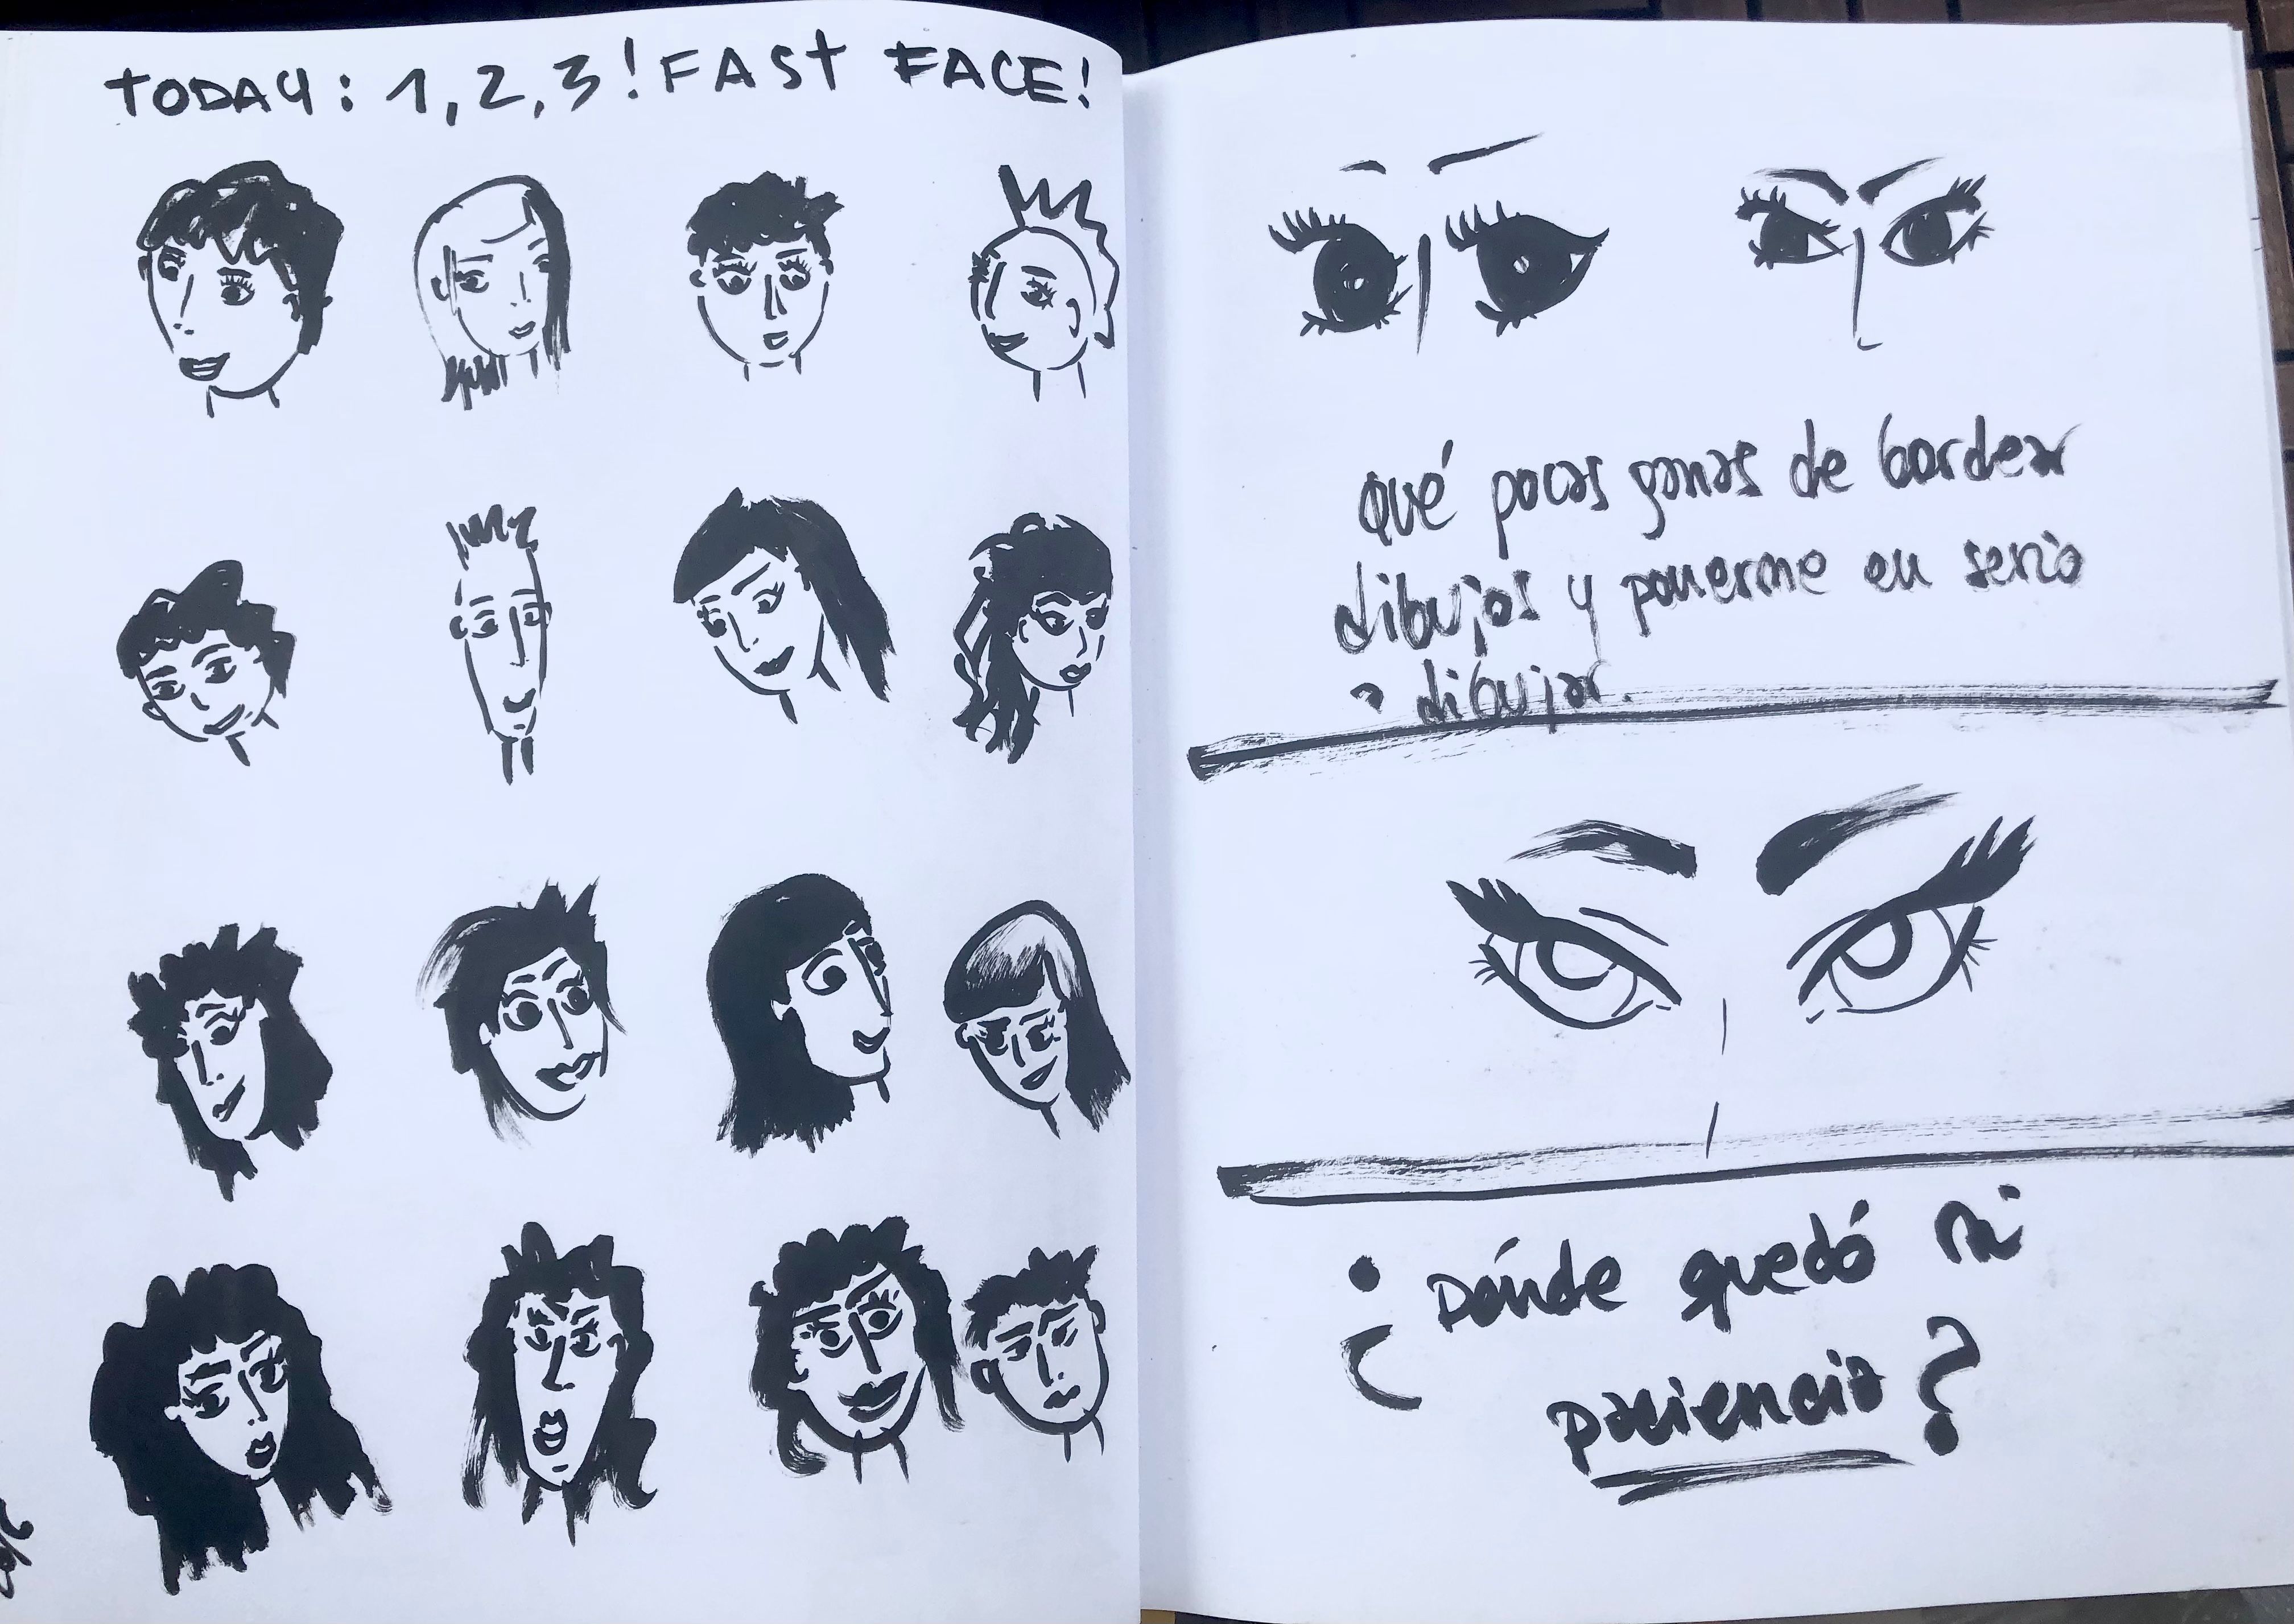 TODAY: 1, 2, 3! FAST FACE!
Qué pocas ganas de bordear
dibujos y ponerme en serio
a dibujar.
¿Dónde quedó mi
paciencia?